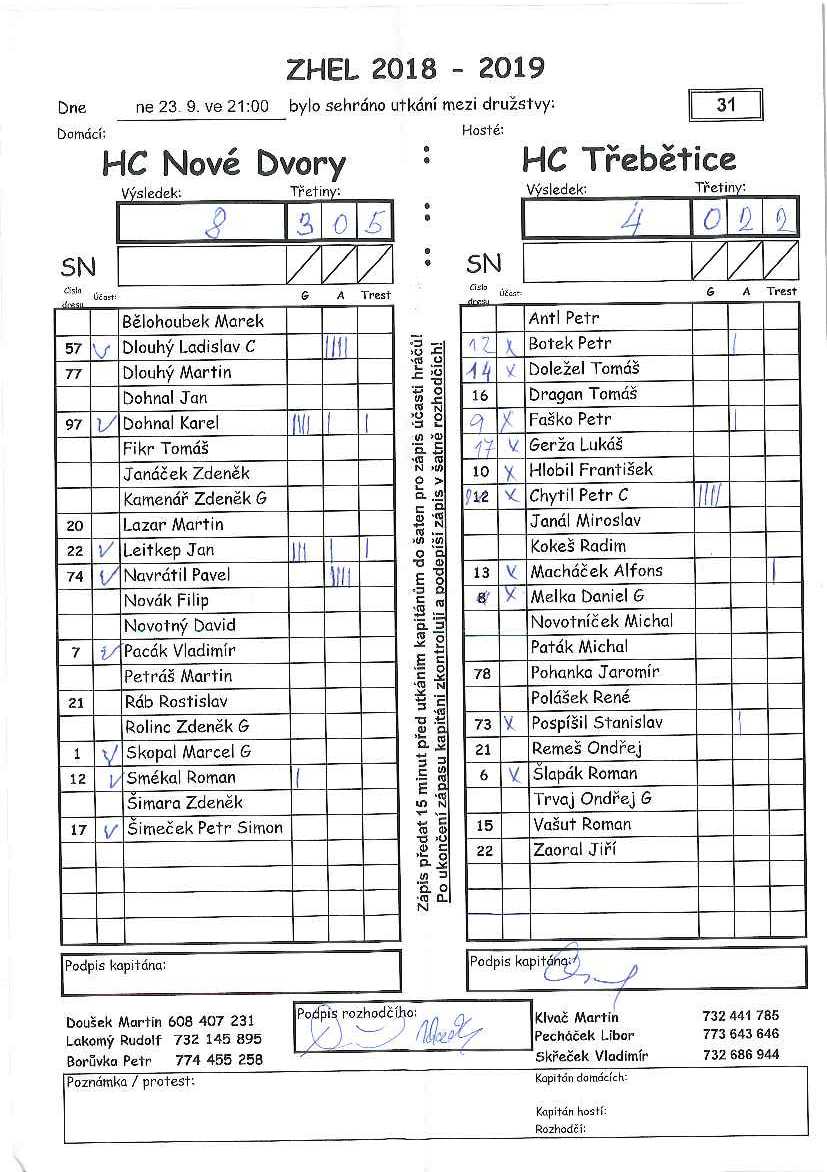 ZHEL 2018 - 2019
Dne ne 23. 9. ve 21:00 bylo sehráno utkání mezi družstvy: 31
Domácí: Hosté:
HC Nové Dvory : HC Třebětice
Výsledek: Třetiny: Výsledek: Třetiny:
8 3 0 5 : 4 0 2 2
SN : SN
Číslo dresu Účast: G A Trest
Bělohoubek Marek
57 Dlouhý Ladislav C IIII
77 Dlouhý Martin
Dohnal Jan
97 Dohnal Karel IIII I I
Fikr Tomáš
Janáček Zdeněk
Kamenář Zdeněk G
20 Lazar Martin
22 Leitkep Jan III I I
74 Navrátil Pavel IIII
Novák Filip
Novotný David
7 Pacák Vladimír
Petráš Martin
21 Ráb Rostislav
Rolinc Zdeněk G
1 Skopal Marcel G
12 Smékal Roman I
Šimara Zdeněk
17 Šimeček Petr Simon
Zápis předat 15 minut před utkáním kapitánům do šaten pro zápis účasti hráčů!
Po ukončení zápasu kapitáni zkontrolují a podepíší zápis v šatně rozhodčích!
Číslo dresu Účast: G A Trest
Antl Petr
12 x Botek Petr I
14 x Doležel Tomáš
16 Dragan Tomáš
9 x Faško Petr I
17 x Gerža Lukáš
10 x Hlobil František
x Chytil Petr C IIII
Janál Miroslav
Kokeš Radim
13 x Macháček Alfons I
x Melka Daniel G
Novotníček Michal
Paták Michal
78 Pohanka Jaromír
Polášek René
73 x Pospíšil Stanislav I
21 Remeš Ondřej
6 x Šlapák Roman
Trvaj Ondřej G
15 Vašut Roman
22 Zaoral Jiří
Podpis kapitána: Podpis kapitána:
Doušek Martin 608 407 231
Lakomý Rudolf 732 145 895
Borůvka Petr 774 455 258
Podpis rozhodčího:
Klvač Martin 732 441 785
Pecháček Libor 773 643 646
Skřeček Vladimír 732 686 944
Poznámka / protest:
Kapitán domácích:
Kapitán hostí:
Rozhodčí: